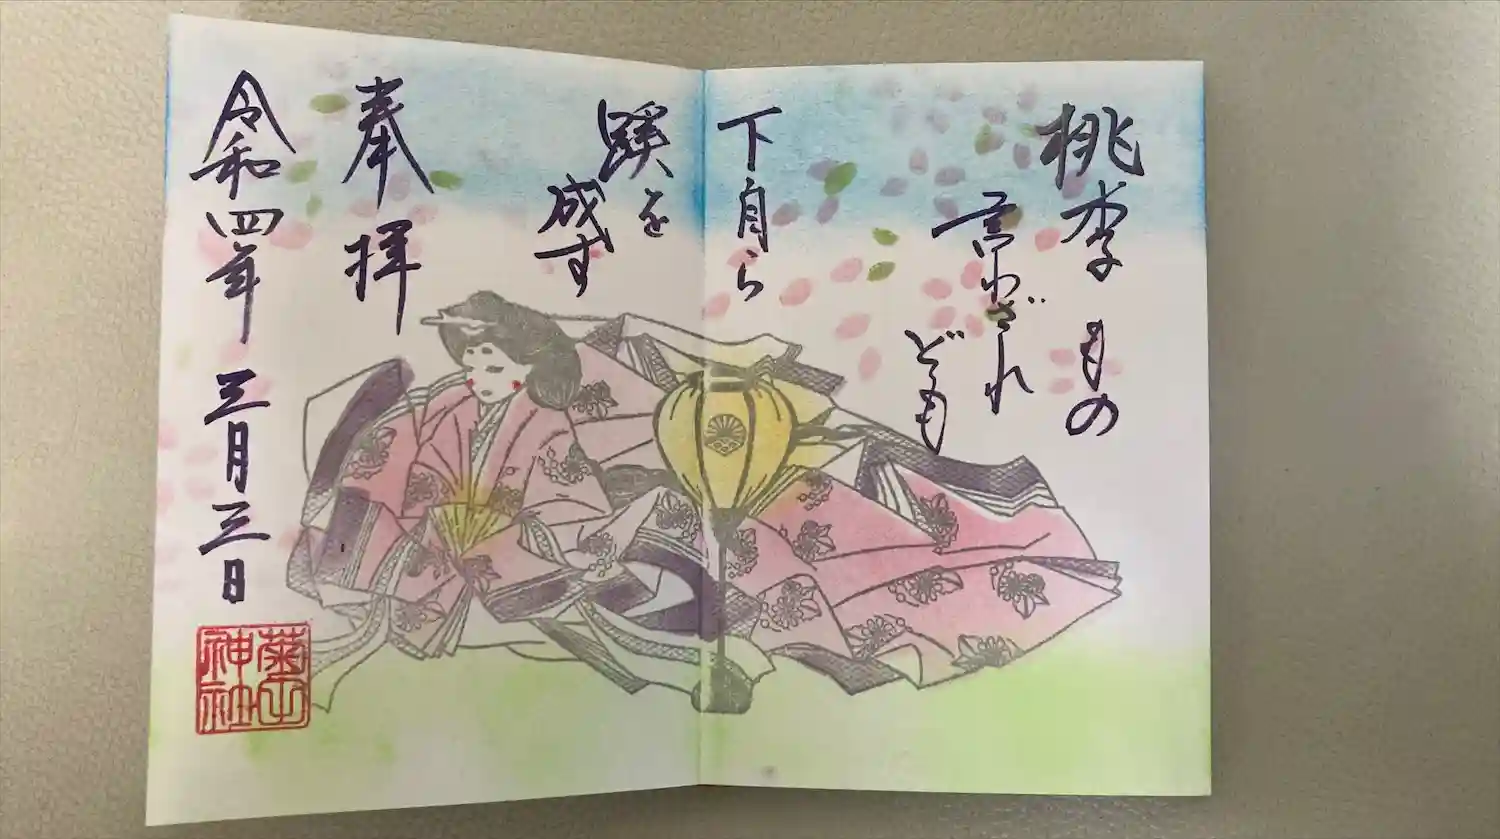 桃李もの
言わざれ
ども
下自ら
蹊を
成す
奉拝
令和四年三月三日
神社